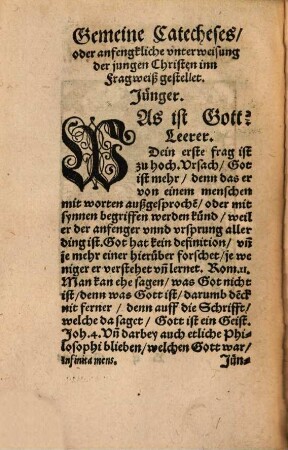 Gemeine Catecheses/
oder anfengkliche vnterweisung
der jungen Christen inn
Fragweiß gestellet.
Jünger.
WAs ist Gott?
Leerer.
Dein erste frag ist
zu hoch. Vrsach/ Got
ist mehr/ denn das er
von einem menschen
mit worten außgesprochē/ oder mit
synnen begriffen werden künd/ weil
er der anfenger vnnd vrsprung aller
ding ist. Got hat kein definition/ vñ
je mehr einer hierüber forschet/ je we
niger er verstehet vñ lernet. Rom. 11.
Man kan ehe sagen/ was Got nicht
ist/ denn was Gott ist/ darumb dēck
nit ferner/ denn auff die Schrifft/
welche da saget/ Gott ist ein Geist.
Joh. 4. Vñ darbey auch etliche Phi-
losophi blieben/ welchen Gott war/
infinita mens. Jün-